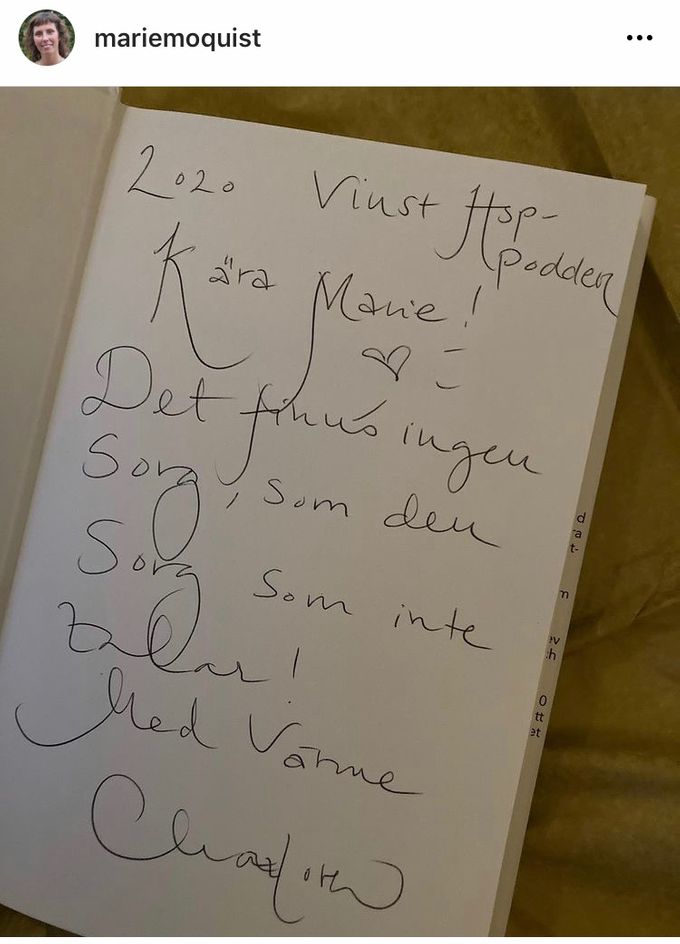 mariemoquist
2020 Vinst Hsp-
podden
Kära Marie!
Det finns ingen
Sorg, som den
Sorg som inte
talar!
Med Värme
d
ra
t-
m
ev
h
0
tt
et